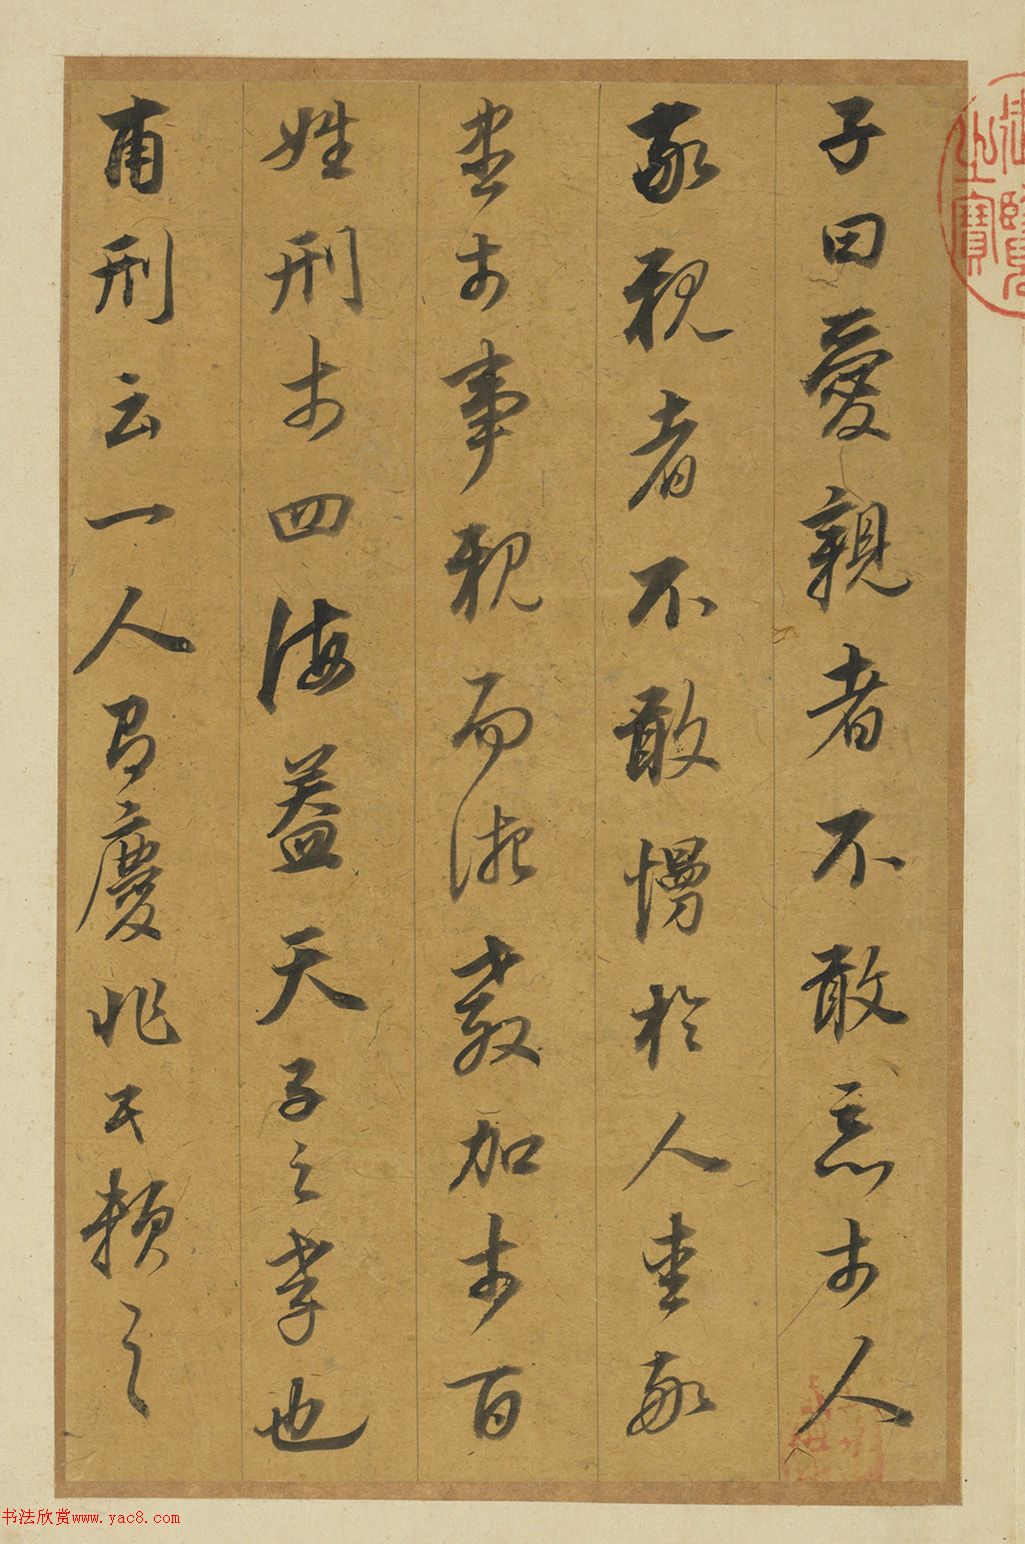 子曰愛親者不敢惡於人
敬親者不敢慢於人愛敬
盡於事親而德教加於百
姓刑於四海蓋天子之孝也
甫刑云一人有慶兆民賴之
御覽之寶
书法欣赏www.yac8.com